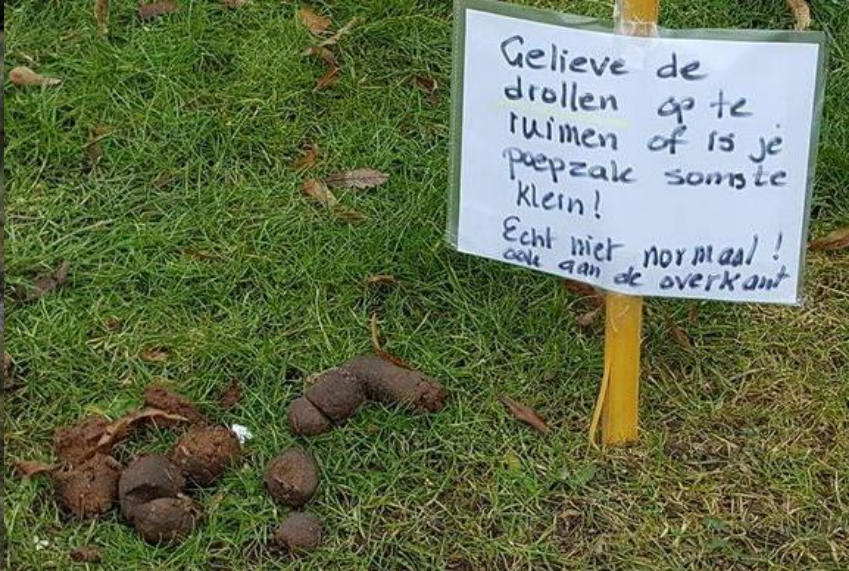 Gelieve de
drollen op te
ruimen of is je
poepzak soms te
klein!
Echt niet normaal!
ook aan de overkant